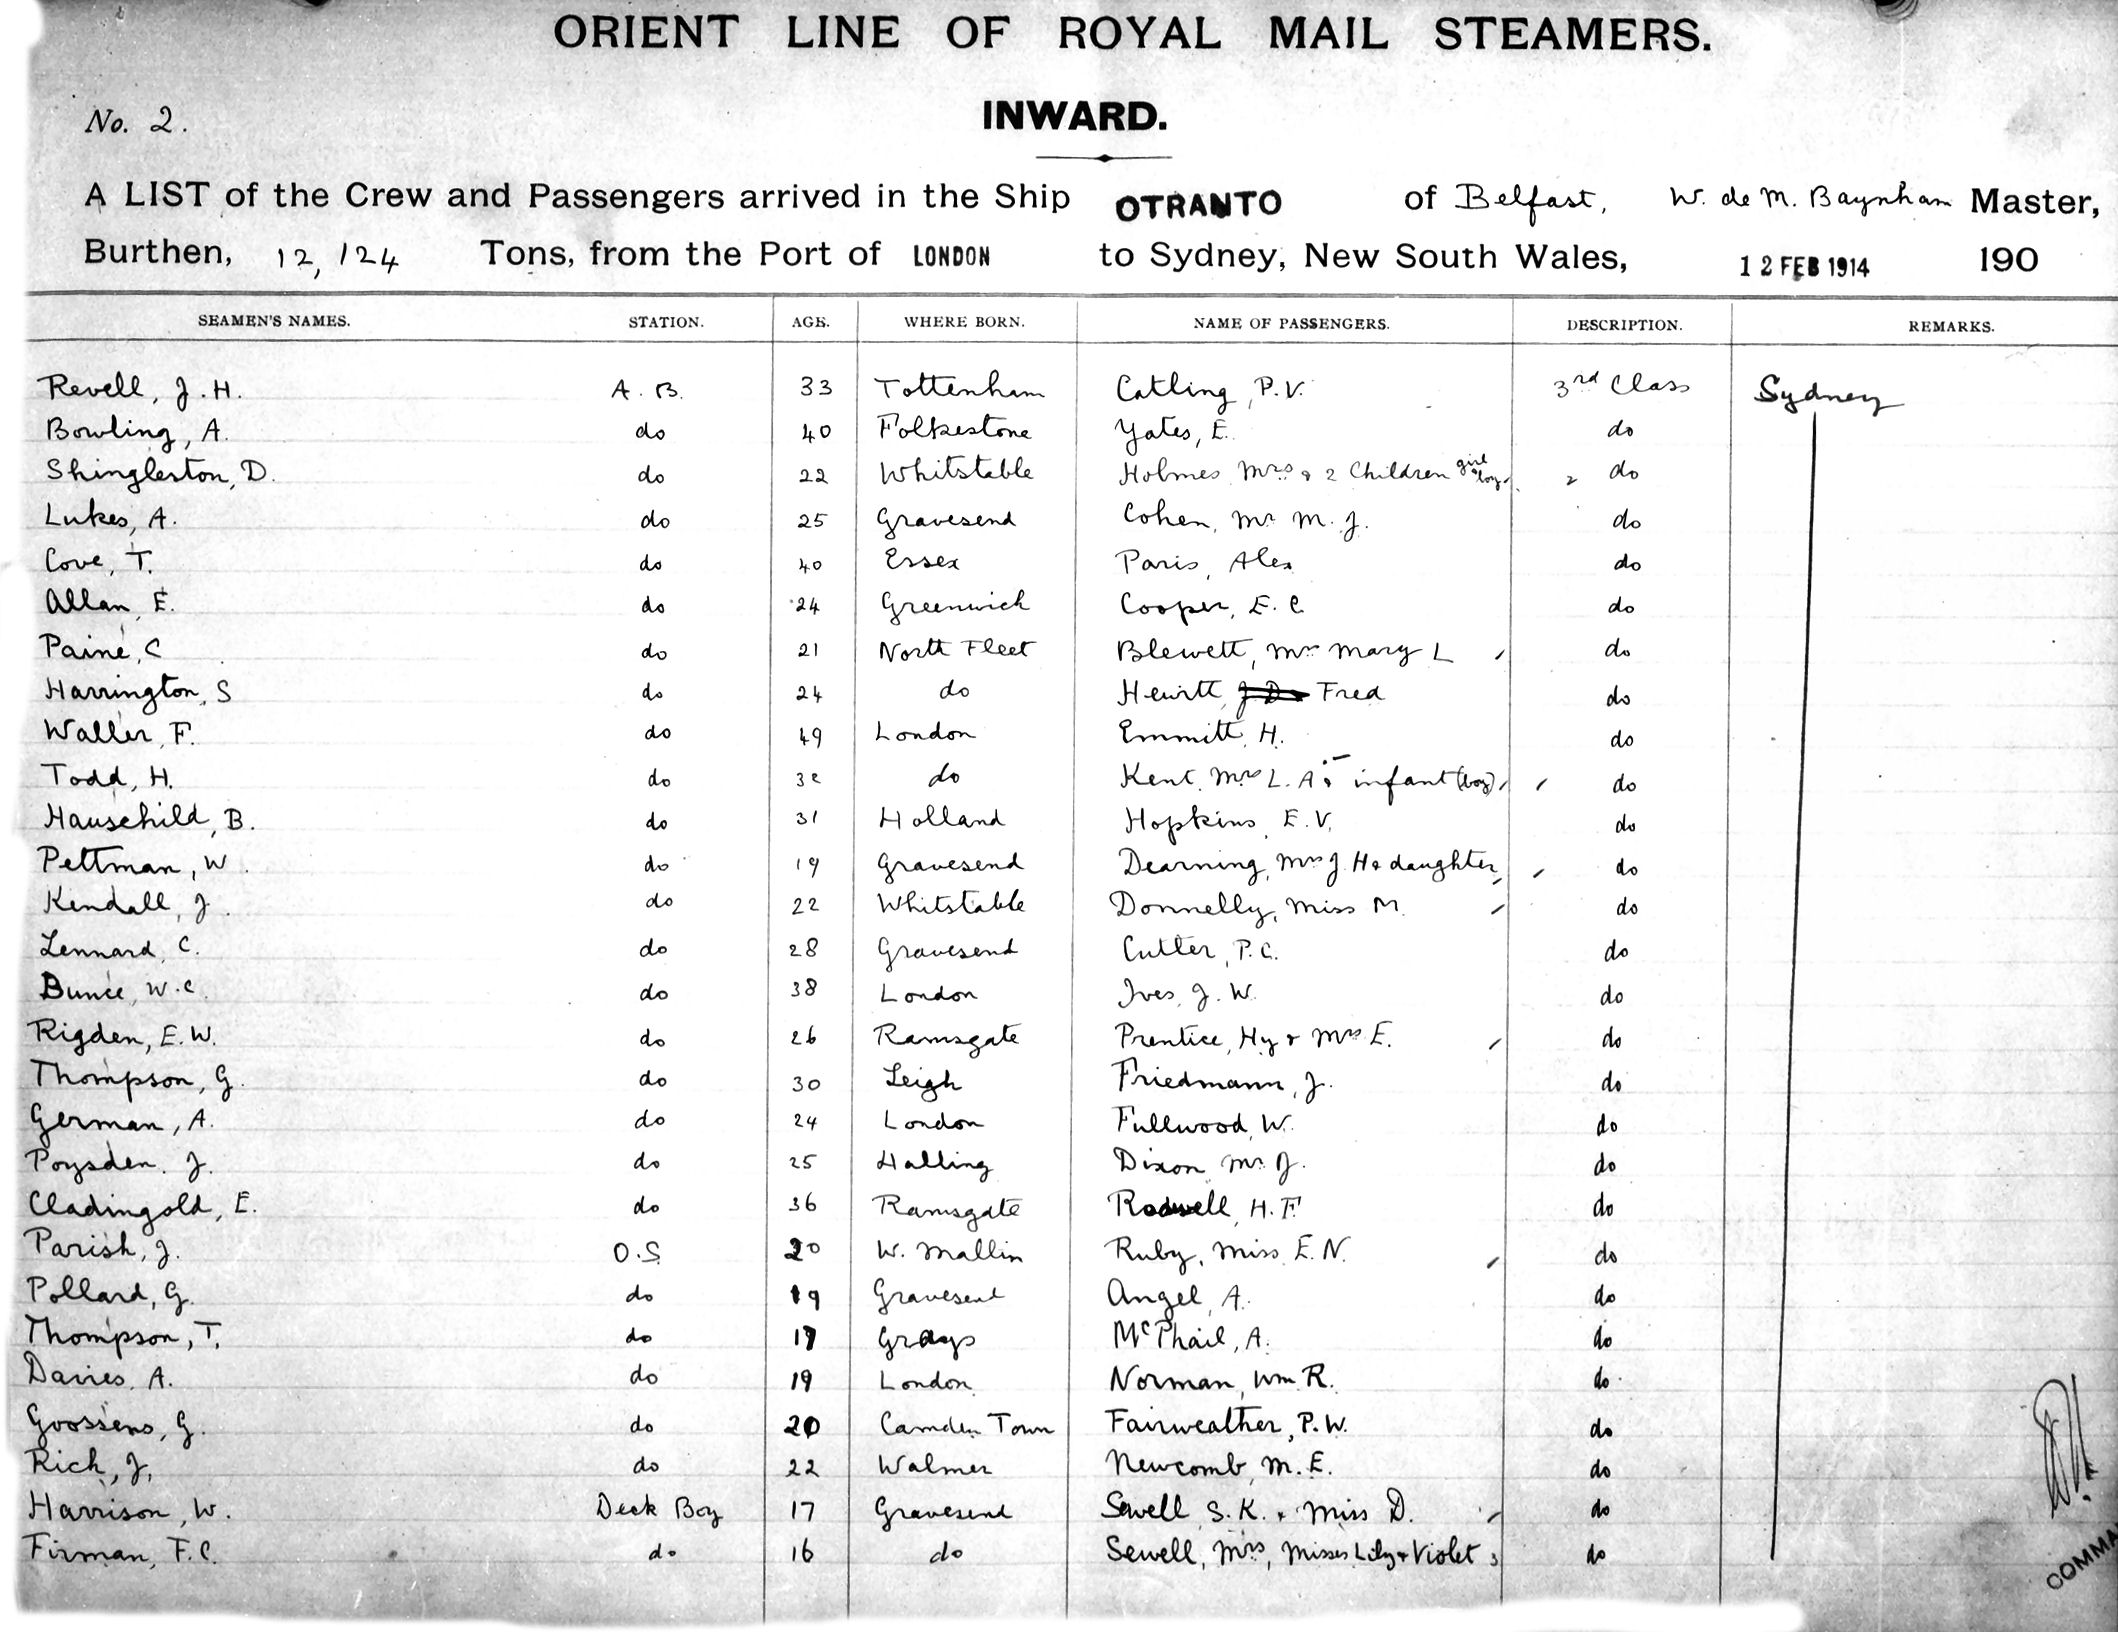 ORIENT LINE OF ROYAL MAIL STEAMERS.
No. 2.
INWARD.
A LIST of the Crew and Passengers arrived in the Ship OTRANTO of Belfast, W. de M. Baynham Master,
Burthen, 12,124 Tons, from the Port of LONDON to Sydney, New South Wales, 12 FEB 1914 190
SEAMEN'S NAMES. STATION. AGE. WHERE BORN. NAME OF PASSENGERS. DESCRIPTION. REMARKS.
Revell, J.H. A.B. 33 Tottenham Catling, P.V. 3rd Class Sydney
Bowling, A. do 40 Folkestone Yates, E. do
Shinglerton, D. do 22 Whitstable Holmes Mrs & 2 Children girl & boy 2 do
Lukes, A. do 25 Gravesend Cohen, Mr M.J. do
Cove, T. do 40 Essex Paris, Alex do
Allan, E. do 24 Greenwich Cooper, E.C. do
Paine, C do 21 North Fleet Blewett, Mrs Mary L do
Harrington, S do 24 do Hewitt, Fred do
Waller, F. do 49 London Emmitt, H. do
Todd, H. do do Kent, Mrs L.A & infant (boy) do
Hauschild, B. do 31 Holland Hopkins, E.V. do
Pettman, W. do 19 Gravesend Dearning, Mrs J.H & daughter do
Kendall, J. do 22 Whitstable Donnelly, Miss M. do
Lennard, C. do 28 Gravesend Cutler, P.C. do
Bunce, W.C. do 38 London Ives, J.W. do
Rigden, E.W. do 26 Ramsgate Prentice, Hy & Mrs E. do
Thompson, G. do 30 Leigh Friedmann, J. do
German, A. do 24 London Fullwood, W. do
Poysden, J. do 25 Halling Dixon Mr J. do
Cladingold, E. do 36 Ramsgate Rodwell, H.F. do
Parish, J. O.S. 20 W. Mallin Ruby, Miss E.N. do
Pollard, G. do 19 Gravesend Angel, A. do
Thompson, T. do Grays McPhail, A. do
Davies, A. do 19 London Norman, Wm R. do
Goossens, G. do 20 Camden Town Fairweather, P.W. do
Rich, J. do 22 Walmer Newcomb, M.E. do
Harrison, W. Deck Boy 17 Gravesend Sewell S.K. & Miss D. do
Firman, F.C. do 16 do Sewell, Mrs, Misses Lily & Violet 3 do
COMMA